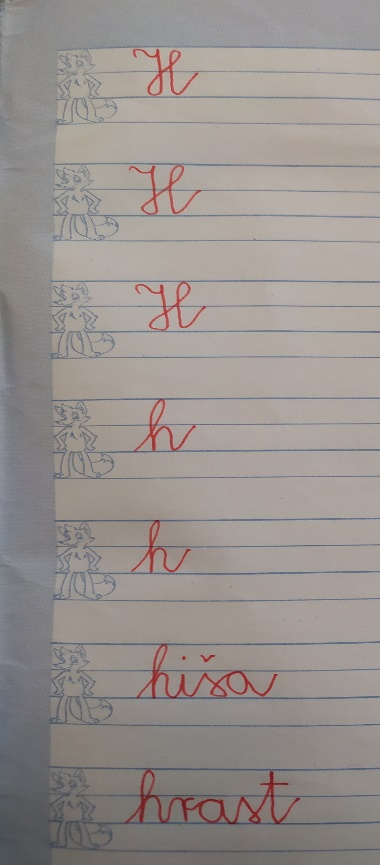 H
H
H
h
h
hiša
hrast